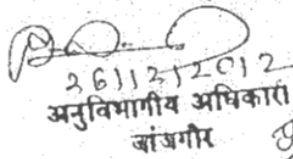 26112/2012
अनुविभागीय अधिकारी
जांजगीर